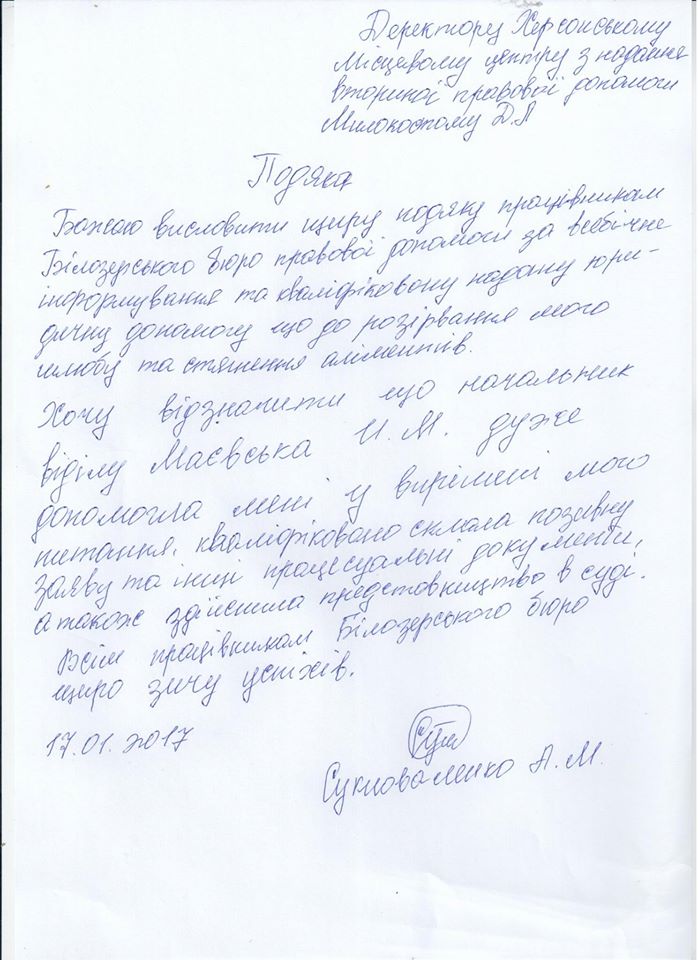 Деректору Херсонському
Місцевому центру з надання
вториної правової допомоги
Милокостому Д.Л
Подяка
Бажаю висловити щиру подяку працівникам
Білозерського бюро правової допомоги за всебічне
інформування та кваліфіковону надану юри-
дичну допомогу що до розірвання мого
шлюбу та стягнення аліментів.
Хочу відзначити що начальник
віділу Маєвська И.М. дуже
допомогла мені у вирішені мого
питання, кваліфіковано склала позивну
заяву та інші процесуальні документи,
а також здійснила предстовництво в суді.
Всім працівникам Білозерського бюро
щиро зичу успіхів.
17.01.2017
Сукноваленко А.М.